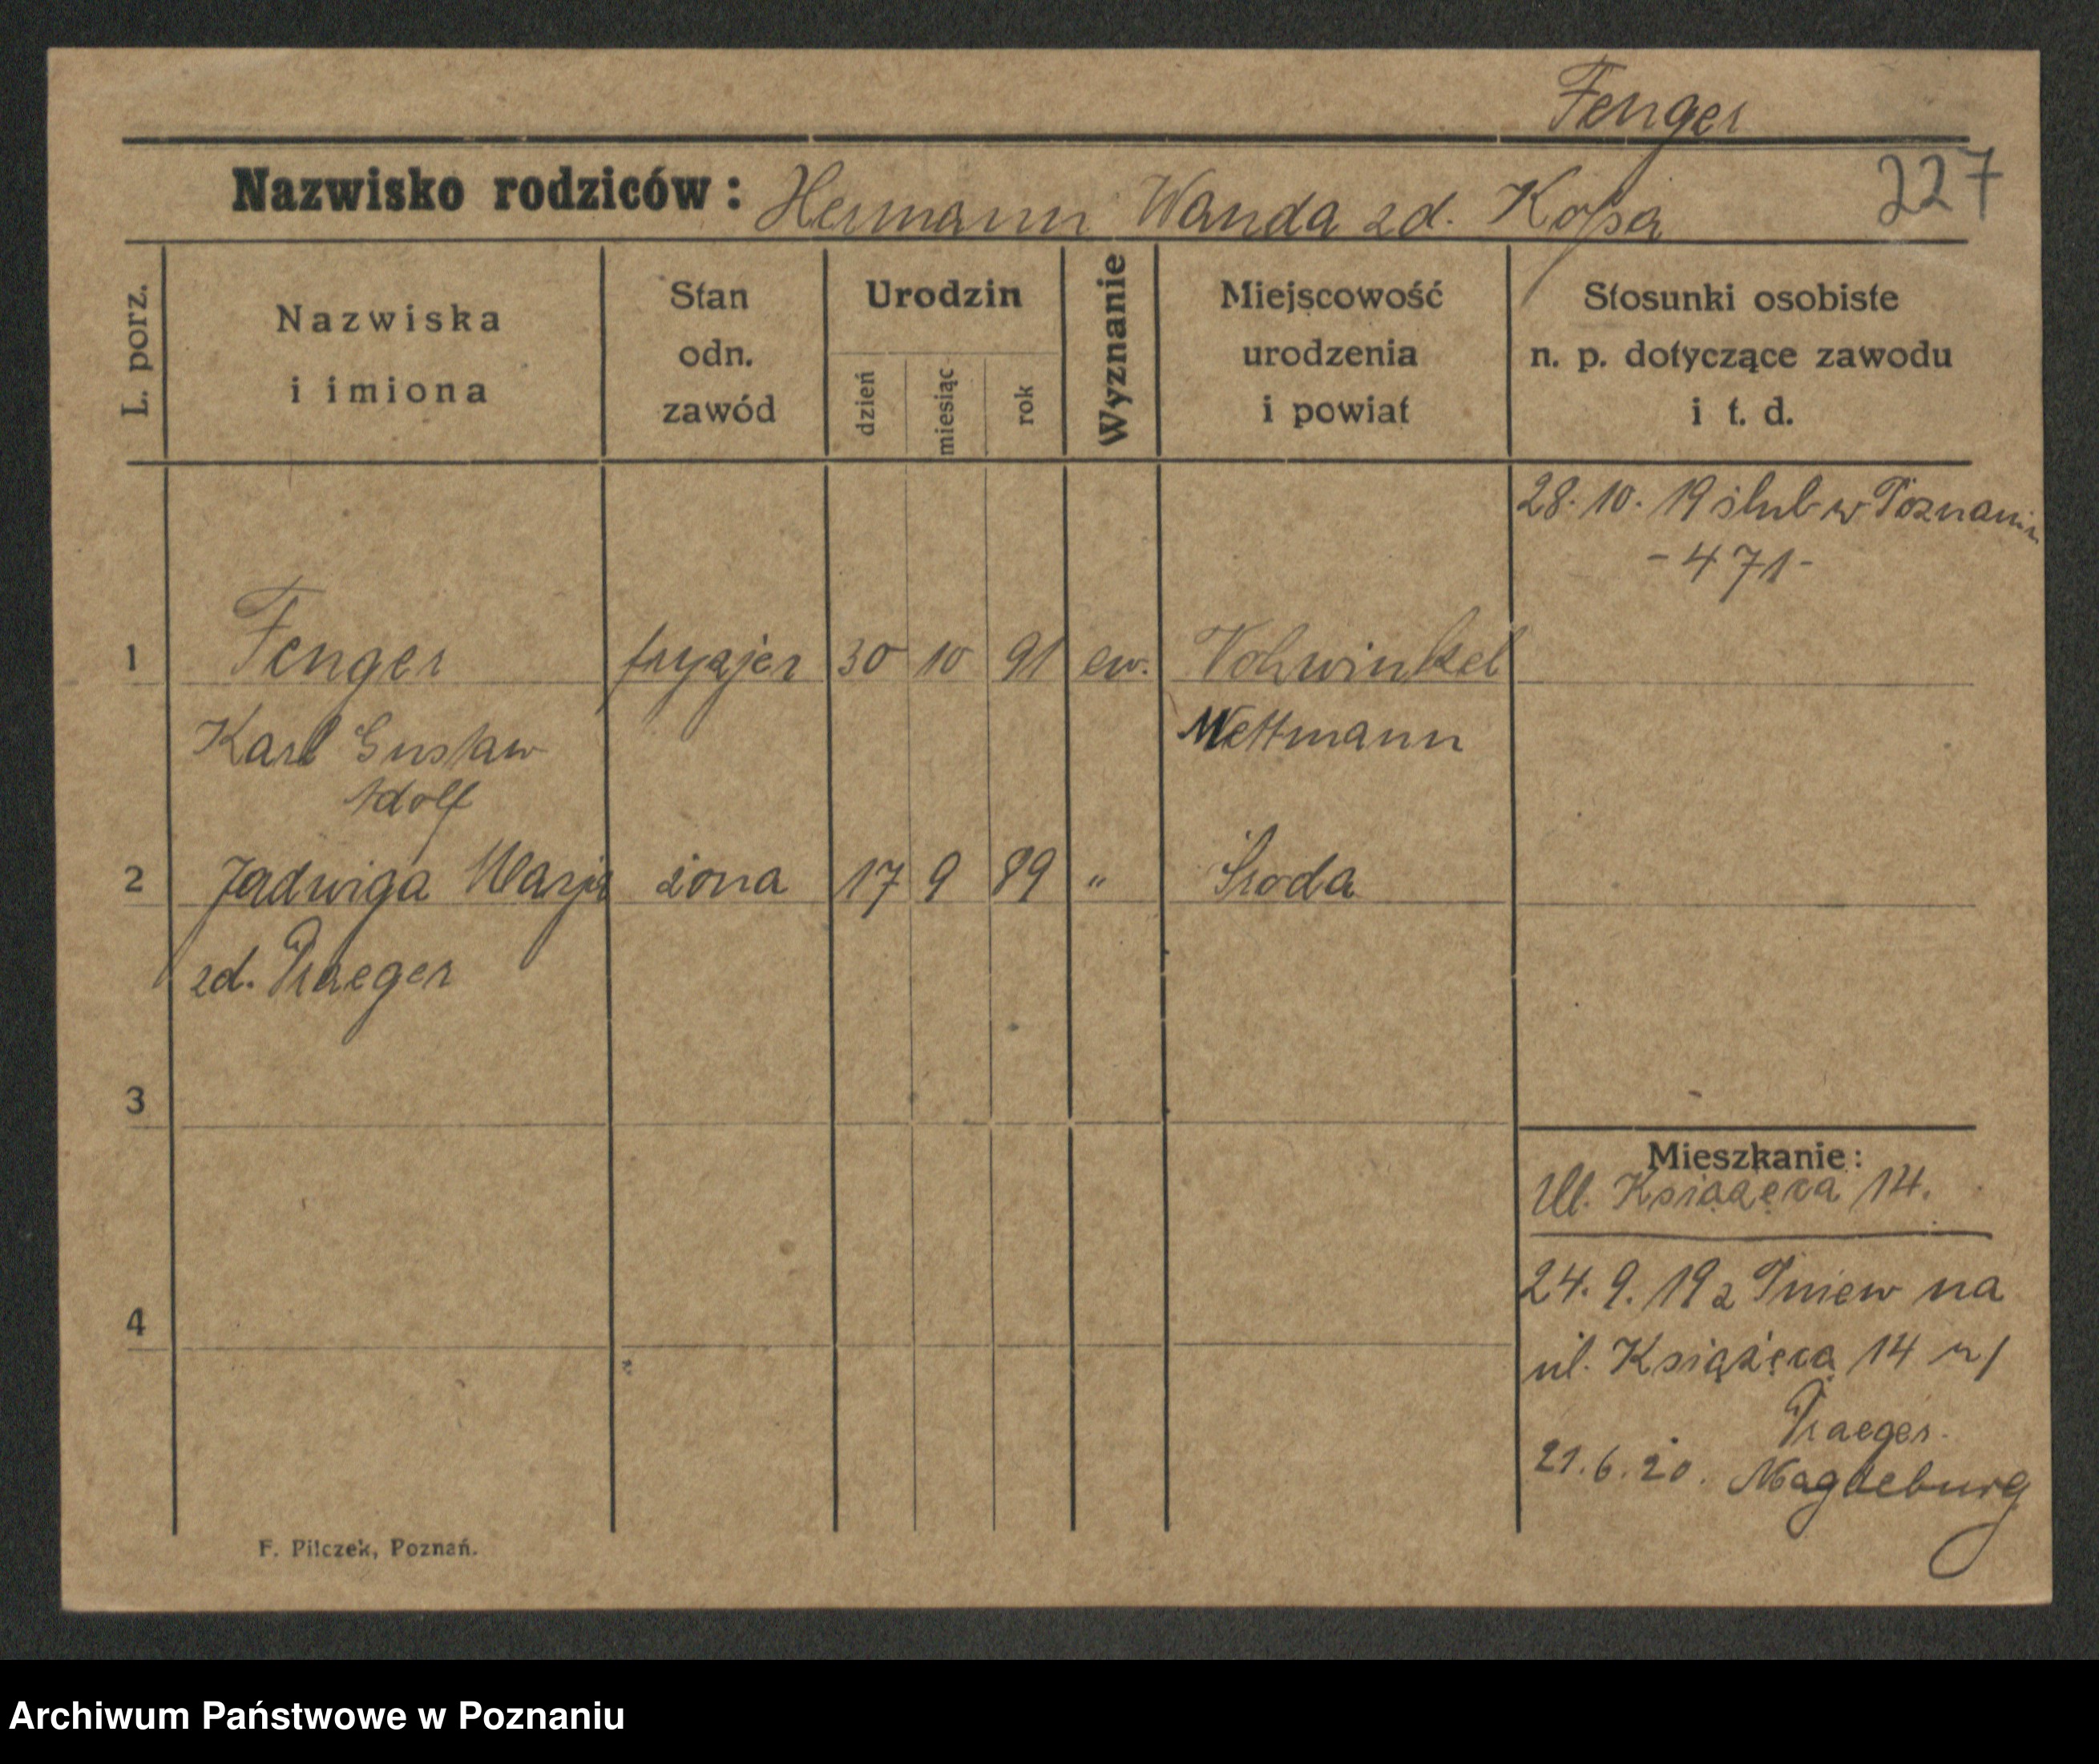 Fenger
Nazwisko rodziców: Hermann Wanda zd. Kopa
227
L. porz.
Nazwiska
i imiona
Stan
odn.
zawód
Urodzin
dzień
miesiąc
rok
Wyznanie
Miejscowość
urodzenia
i powiat
Stosunki osobiste
n. p. dotyczące zawodu
i t. d.
28. 10. 19 ślub w Poznaniu
- 471 -
1 Fenger fryzjer 30 10 91 ew. Vohwinkel
Karl Gustaw Mettmann
Adolf
2 Jadwiga Marja żona 17 9 89 " Środa
zd. Praeger
3
Mieszkanie:
Ul. Książęca 14.
24. 9. 19 z Pniew na
4
ul. Książęca 14 u/
Praeger.
21. 6. 20. Magdeburg
F. Pilczek, Poznań.
Archiwum Państwowe w Poznaniu